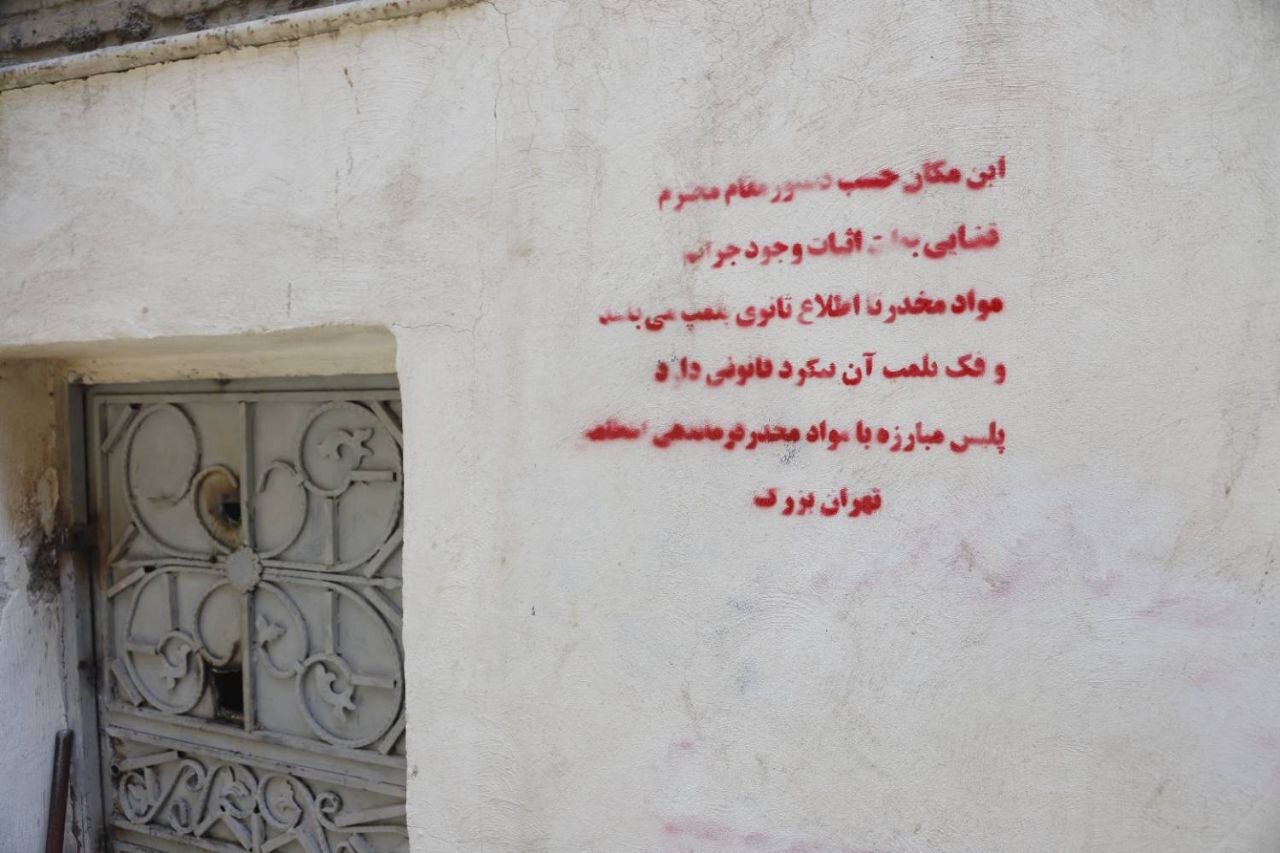 این مکان حسب دستور مقام محترم
قضایی بعلت اثبات وجود جرائم
مواد مخدر تا اطلاع ثانوی پلمپ می باشد
و فک پلمپ آن پیگرد قانونی دارد
پلیس مبارزه با مواد مخدر فرماندهی انتظامی
تهران بزرگ